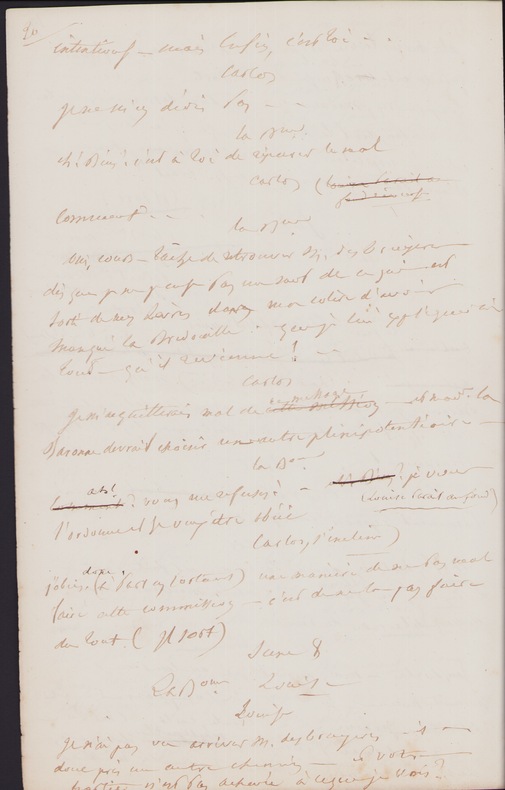 20
intentions — mais enfin, c'est toi - -
Carlos
Je ne m'en dédis pas - -
la Bnne
eh! bien! c'est à toi de réparer le mal
Carlos
Comment - -
la Bnne
Oui, cours — tâche de retrouver M. des bruyères —
dis que je ne pense pas un mot de ce qui est
sorti de mes lèvres dans mon colère d'avoir
manqué la Bredouille - que je lui expliquerai
tout — qu'il revienne! - -
Carlos
Je m'acquitterais mal de ce message — et made la
Baronne devrait choisir un autre plénipotentiaire —
la Bnne
ah! vous me refusez? — je veux
(Louise paraît au fond)
l'ordonne et je veux être obéi
Carlos, s'inclin)
j'obéis donc (à part en sortant) une manière de ne pas mal
faire cette commission — c'est de ne la pas faire
du tout. (il sort)
Scène 8
La Bonne Louise
Louise
Je n'ai pas vu arriver M. des bruyères — il —
donc pris un autre chemin — et votre
partie n'est pas achevée à ce que je vois?